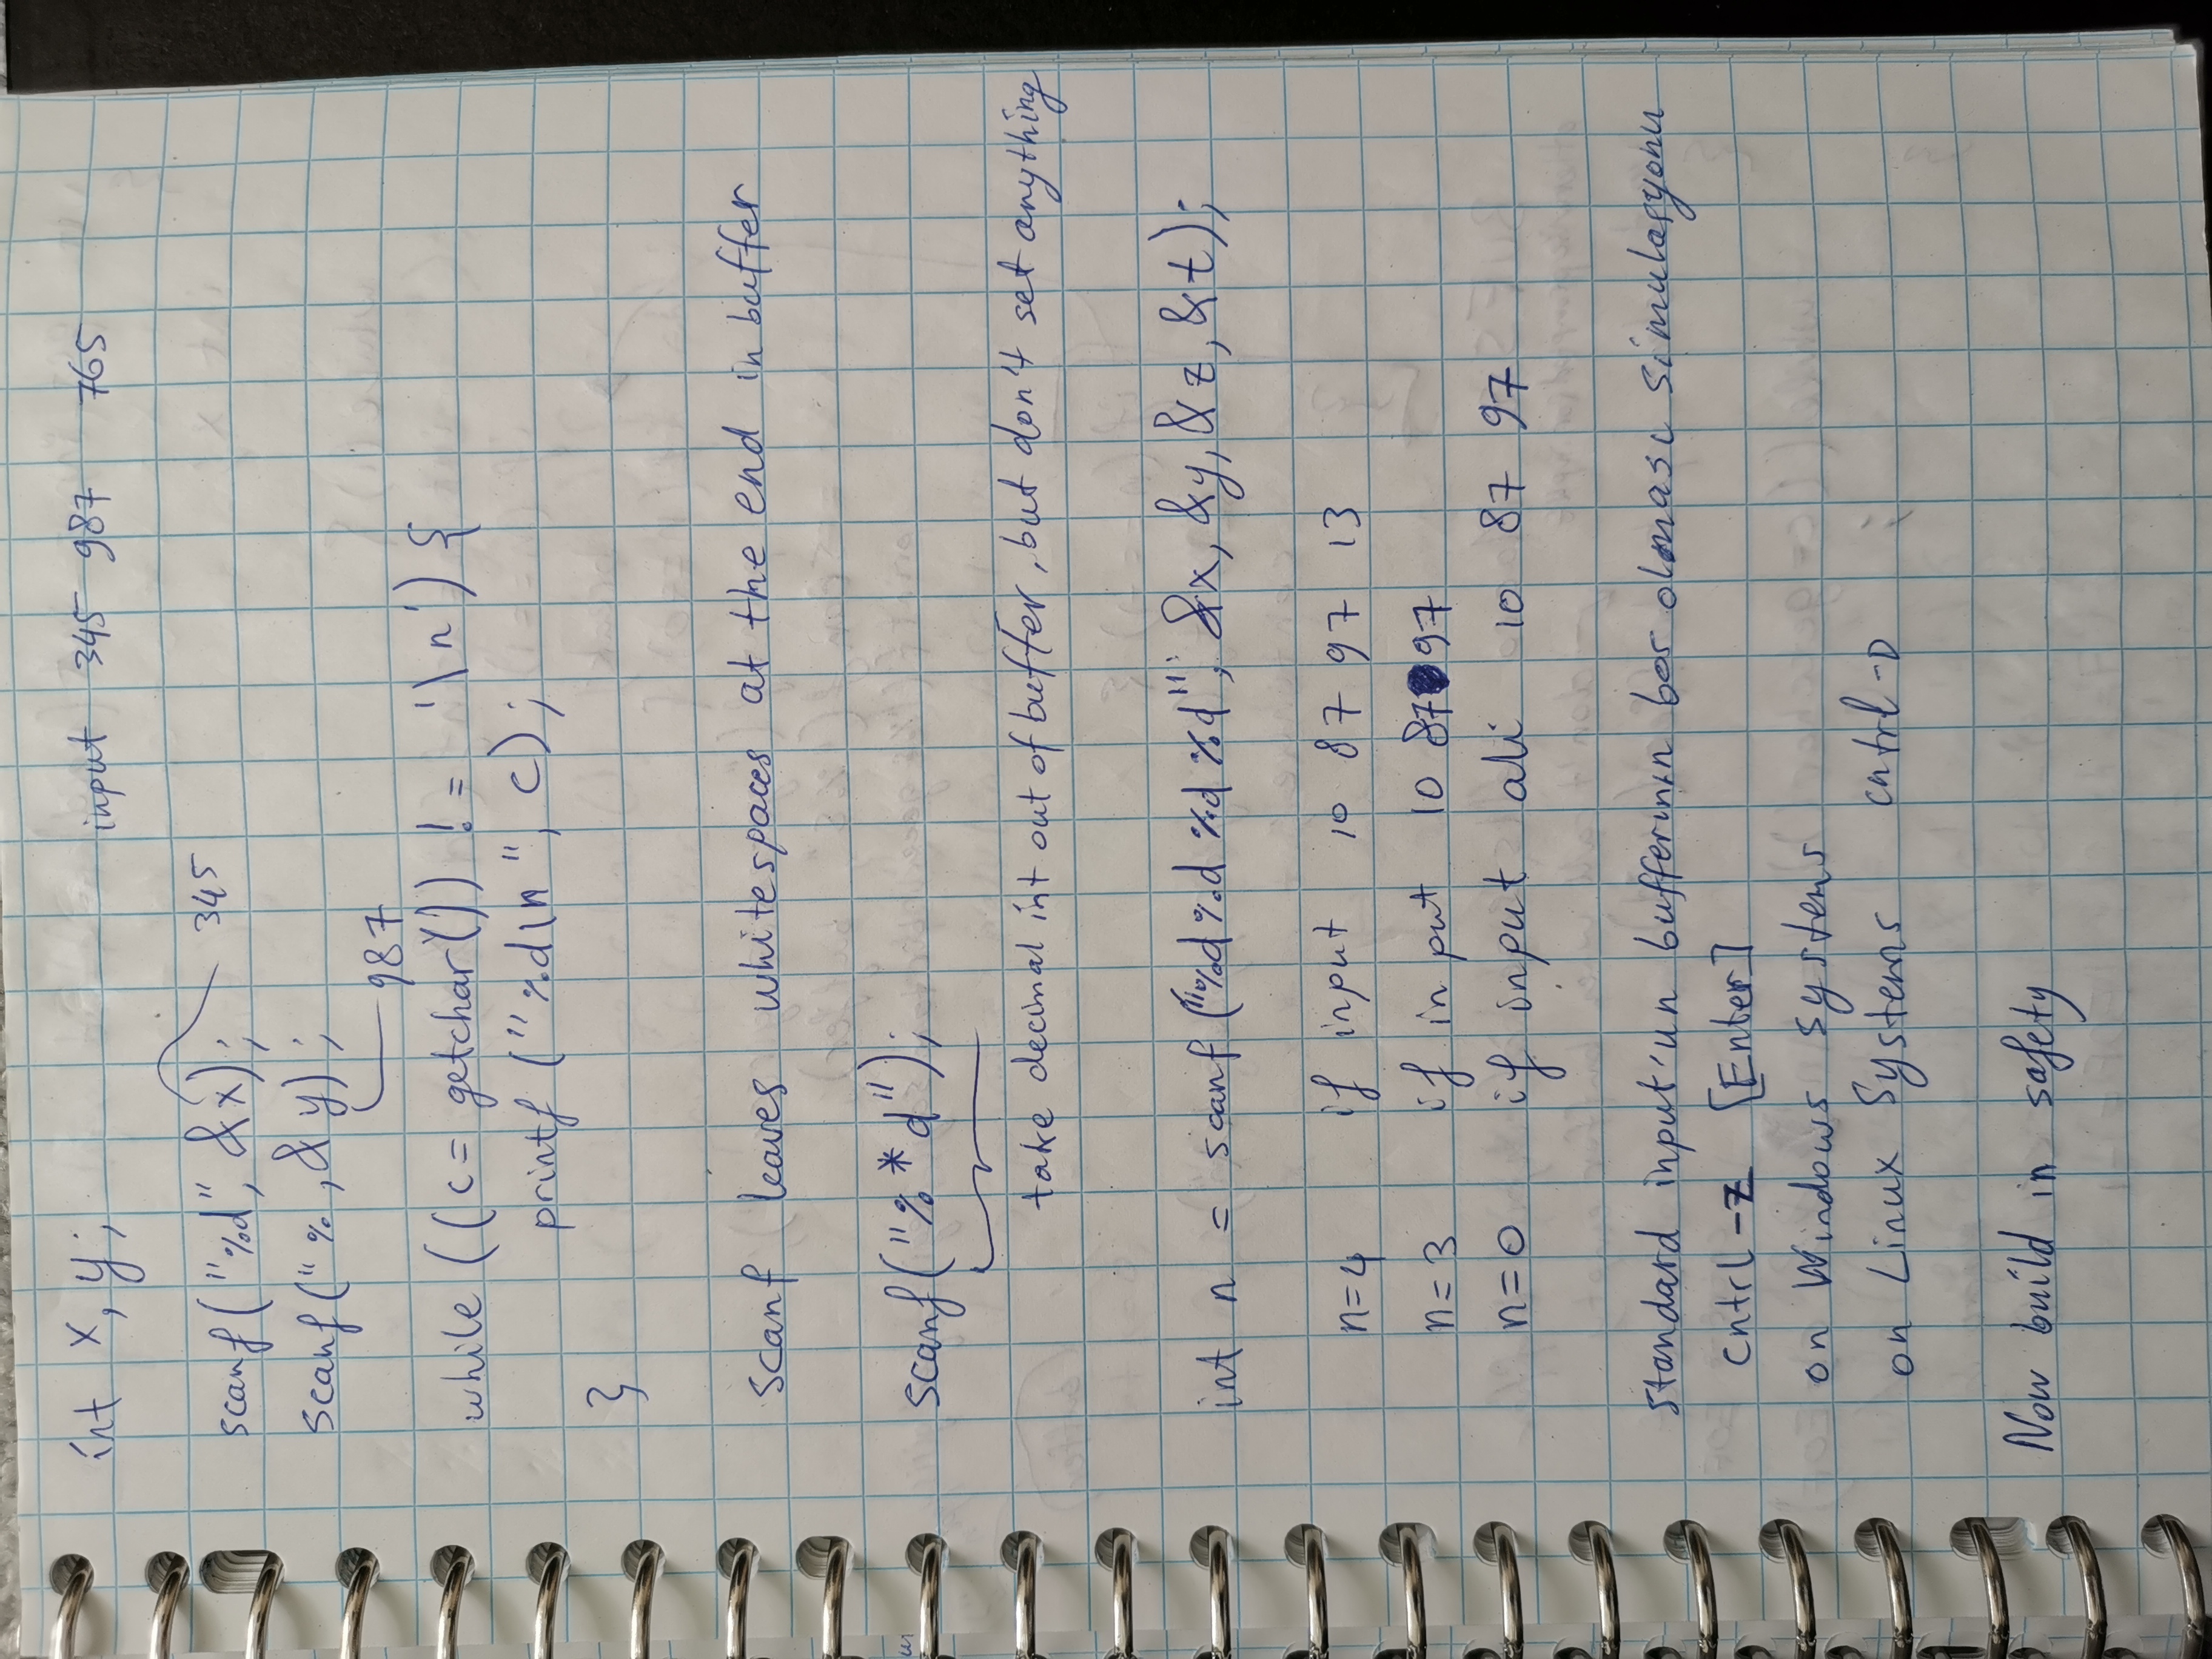 int x, y; input 345 987 765
scanf("%d", &x); 345
scanf("%, &y);
987
while ((c= getchar()) != '\n') {
printf ("%d\n", c);
}
scanf leaves whitespaces at the end in buffer
scanf("%*d");
take decimal int out of buffer, but don't set anything
int n = scanf ("%d%d%d%d", &x, &y, &z, &t);
n=4 if input 10 87 97 13
n=3 if input 10 87 97
n=0 if input ali 10 87 97
standard input'un bufferının boş olması simulasyonu
cntrl-z [Enter]
on Windows systems
on Linux Systems cntrl-D
Now build in safety